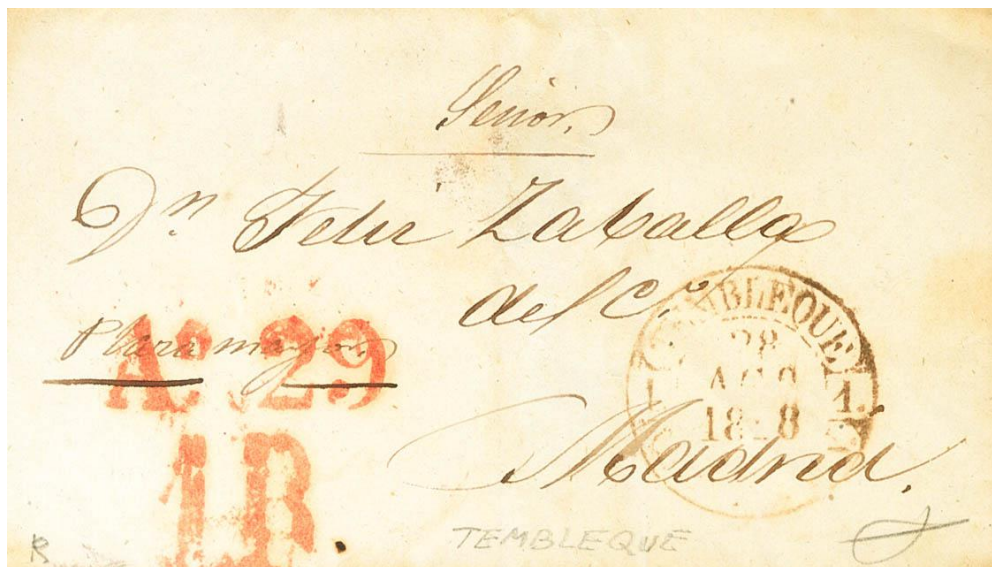 Señor
Dn Felix Zaballa
del C.º
Plaza mayor
Aº. 29
TEMBLEQUE
28
AGO
1
1.
18 8
Madrid.
1R
TEMBLEQUE
R